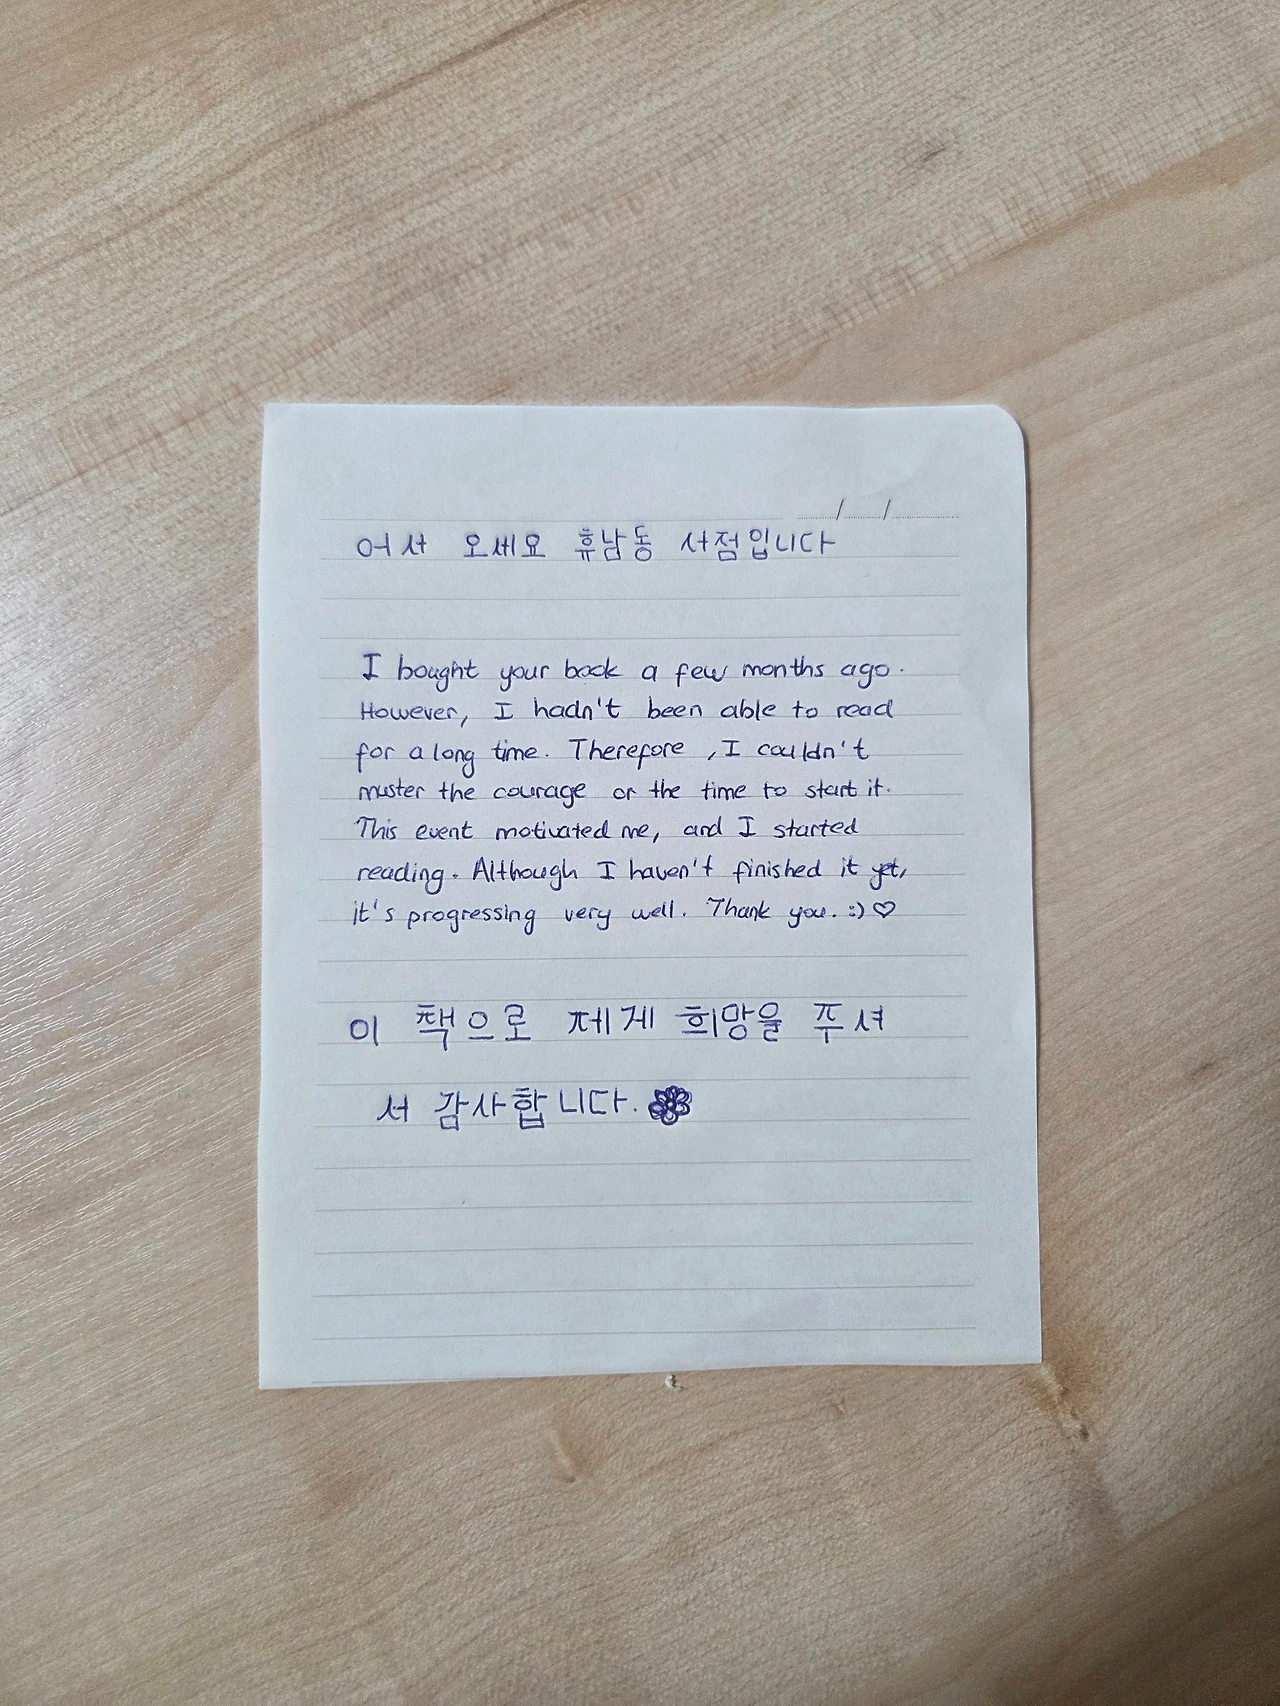 어서 오세요 휴남동 서점입니다
I bought your book a few months ago.
However, I hadn't been able to read
for a long time. Therefore, I couldn't
muster the courage or the time to start it.
This event motivated me, and I started
reading. Although I haven't finished it yet,
it's progressing very well. Thank you. :) ♡
이 책으로 제게 희망을 주셔
서 감사합니다.